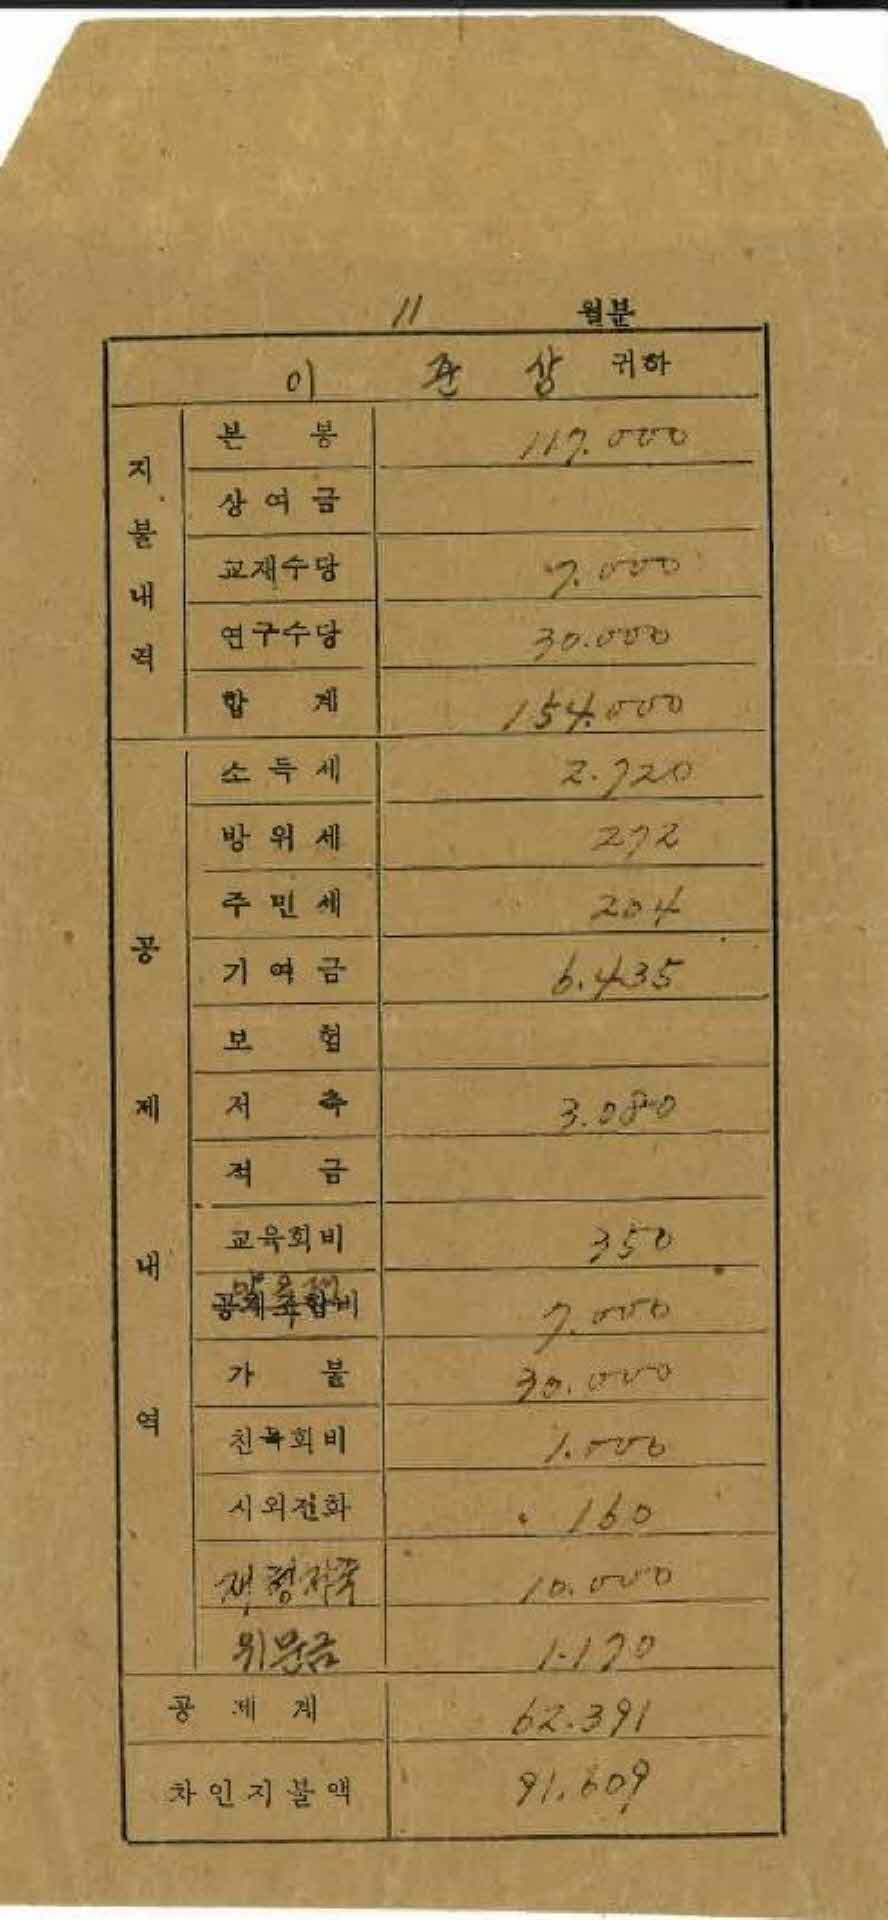 11 월분
이 관 상 귀하
지불내역
본 봉 117.000
상여금
교재수당 7.000
연구수당 30.000
합 계 154.000
공제내역
소득세 2.720
방위세 272
주민세 204
기여금 6.435
보 험
저 축 3.080
적 금
교육회비 350
공제조합비 7.000
가 불 30.000
친목회비 1.000
시외전화 160
재형저축 10.000
위문금 1.170
공제계 62.391
차인지불액 91.609